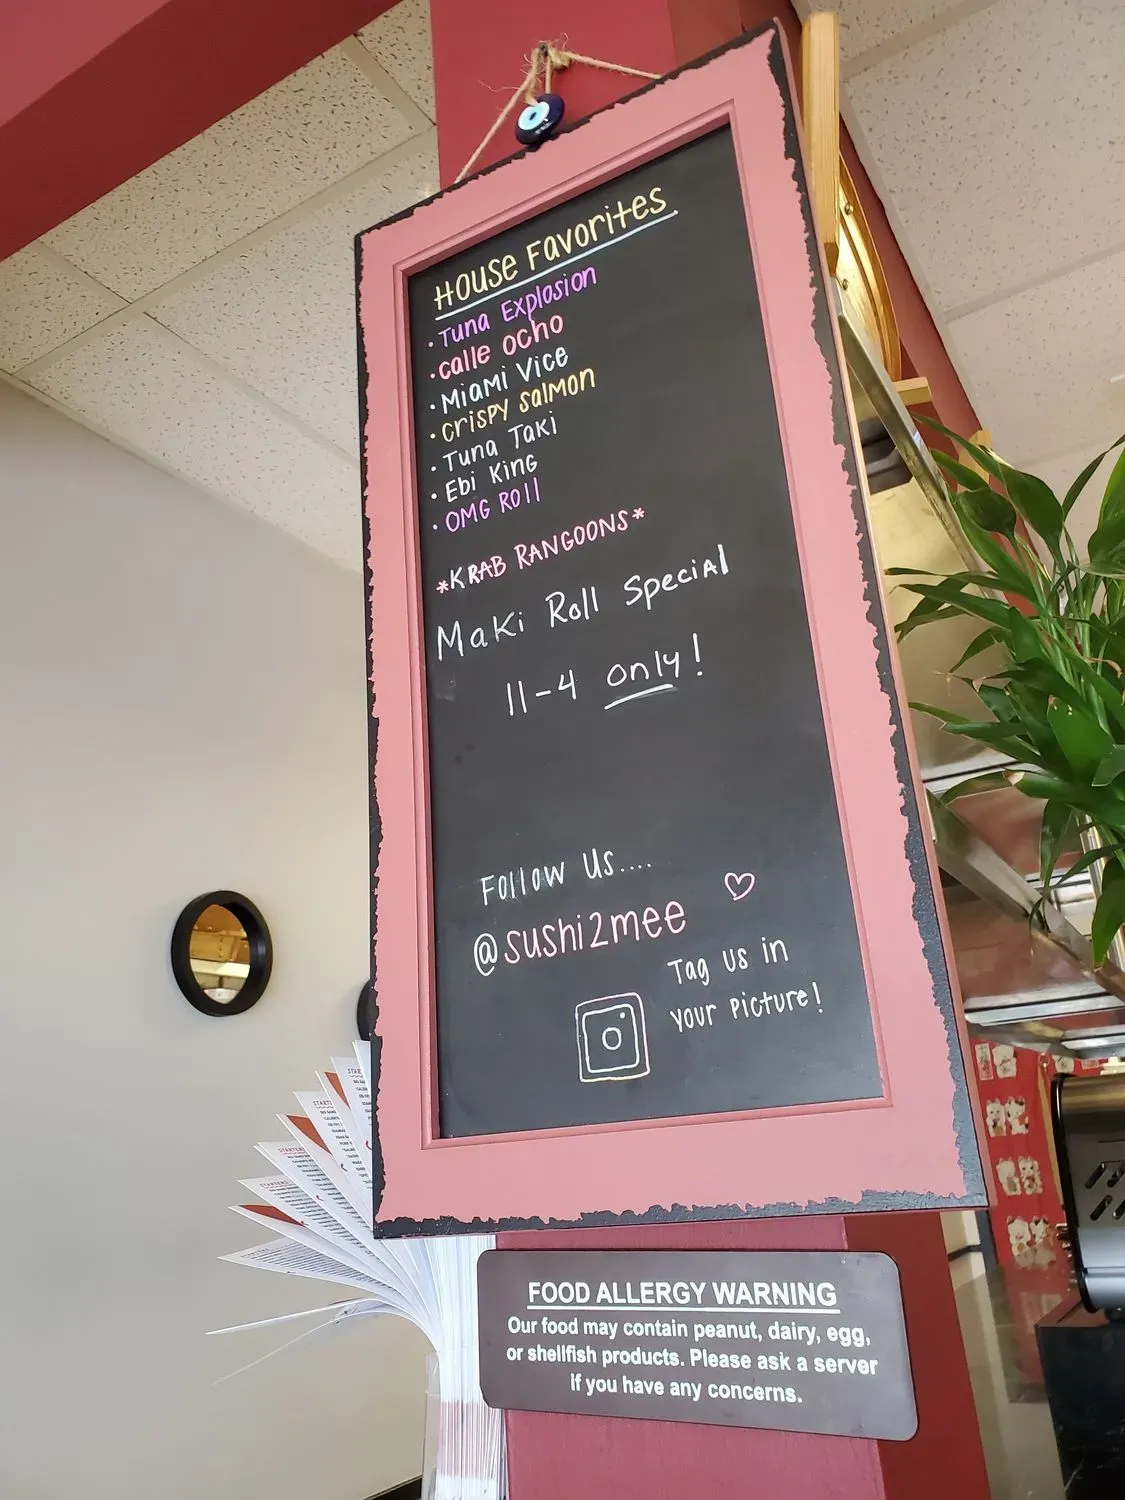 House Favorites
• Tuna Explosion
• calle ocho
• Miami Vice
• crispy salmon
• Tuna Taki
• Ebi King
• OMG Roll
*KRAB RANGOONS*
Maki Roll Special
11-4 only!
Follow Us....
@sushi2mee
Tag us in
your picture!
FOOD ALLERGY WARNING
Our food may contain peanut, dairy, egg,
or shellfish products. Please ask a server
if you have any concerns.
STARTERS